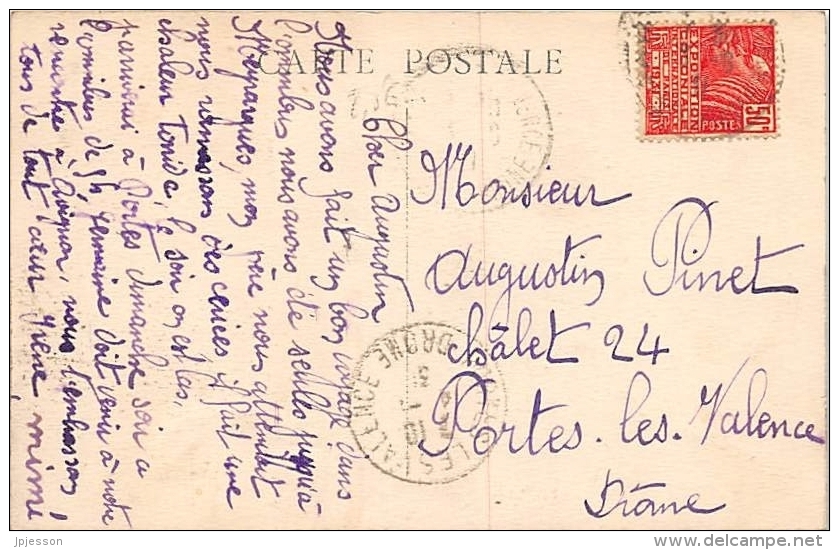 CARTE POSTALE
Cher Augustin
Nous avons fait un bon voyage dans
l'omnibus nous avons été seules jusqu'à
Meyrargues, mon père nous attendait
nous ramassons des cerises il fait une
chaleur torride, le soir on est las,
j'arriverai à Portes dimanche soir a
l'omnibus de 9h germaine doit venir à notre
rencontre à Avignon, nous t'embrassons
tous de tout cœur Irène, Mimi
Monsieur
Augustin Pinet
châlet 24
Portes-les-Valence
Drôme
EXPOSITION
COLONIALE
INTERNATIONALE
DE PARIS
1931
POSTES
50c
PORTES LES VALENCE
DROME
jpjcollection.delcampe.net